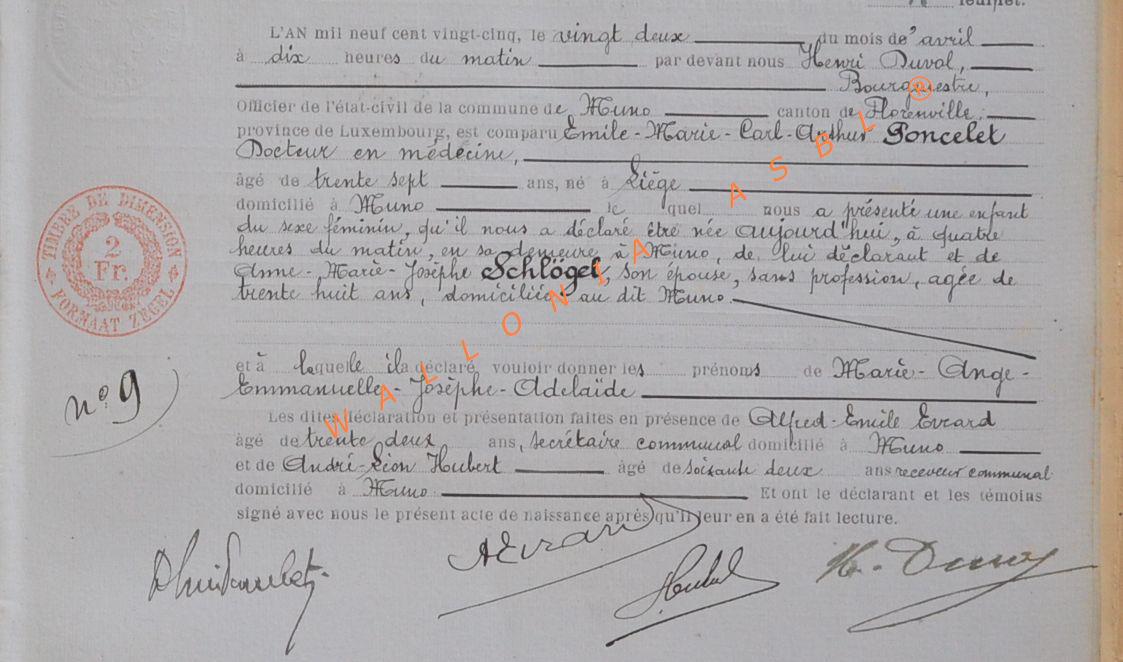 feuillet.
L'AN mil neuf cent vingt-cinq, le vingt deux du mois de avril
à dix heures du matin par devant nous Henri Duval,
Bourgmestre,
Officier de l'état-civil de la commune de Muno canton de Florenville,
province de Luxembourg, est comparu Emile-Marie-Carl-Arthur Poncelet
Docteur en médecine,
âgé de trente sept ans, né à Liège
domicilié à Muno le quel nous a présenté une enfant
du sexe féminin, qu'il nous a déclaré être née aujourd'hui, à quatre
heures du matin, en sa demeure, à Muno, de lui déclarant et de
Anne-Marie-Josèphe Schlögel, son épouse, sans profession, agée de
trente huit ans, domiciliée au dit Muno.
et à laquelle il a déclaré vouloir donner les prénoms de Marie-Ange-
Emmanuelle-Josèphe-Adelaïde
Les dites déclaration et présentation faites en présence de Alfred-Emile Evrard
âgé de trente deux ans, secrétaire communal domicilié à Muno
et de André-Léon Hubert âgé de soixante deux ans receveur communal
domicilié à Muno Et ont le déclarant et les témoins
signé avec nous le présent acte de naissance après qu'il leur en a été fait lecture.
TIMBRE DE DIMENSION
2
Fr.
FORMAAT ZEGEL
n° 9
AEvrard
Hubert
H. Duval
WALLONIA ASBL ®